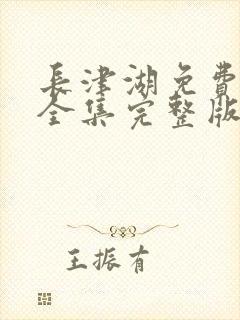 長津湖免費
全集完整版
王振有